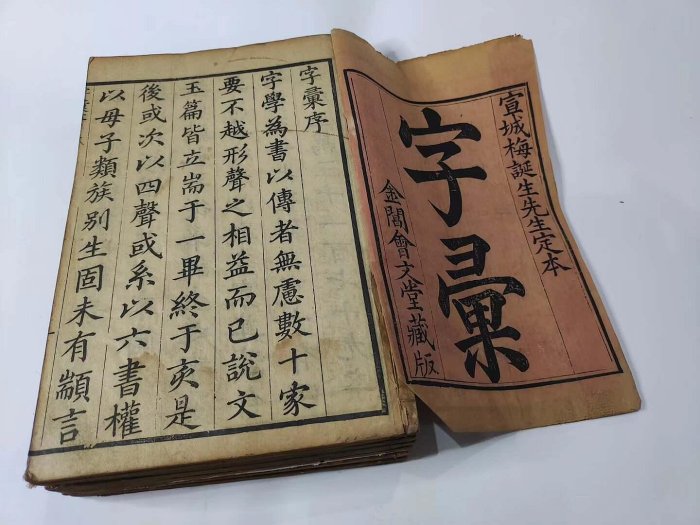 宣城梅誕生先生定本
字彚
金閶會文堂藏版
字彚序
字學為書以傳者無慮數十家
要不越形聲之相益而已說文
玉篇皆立耑于一畢終于亥是
後或次以四聲或系以六書權
以母子類族別生固未有顓言